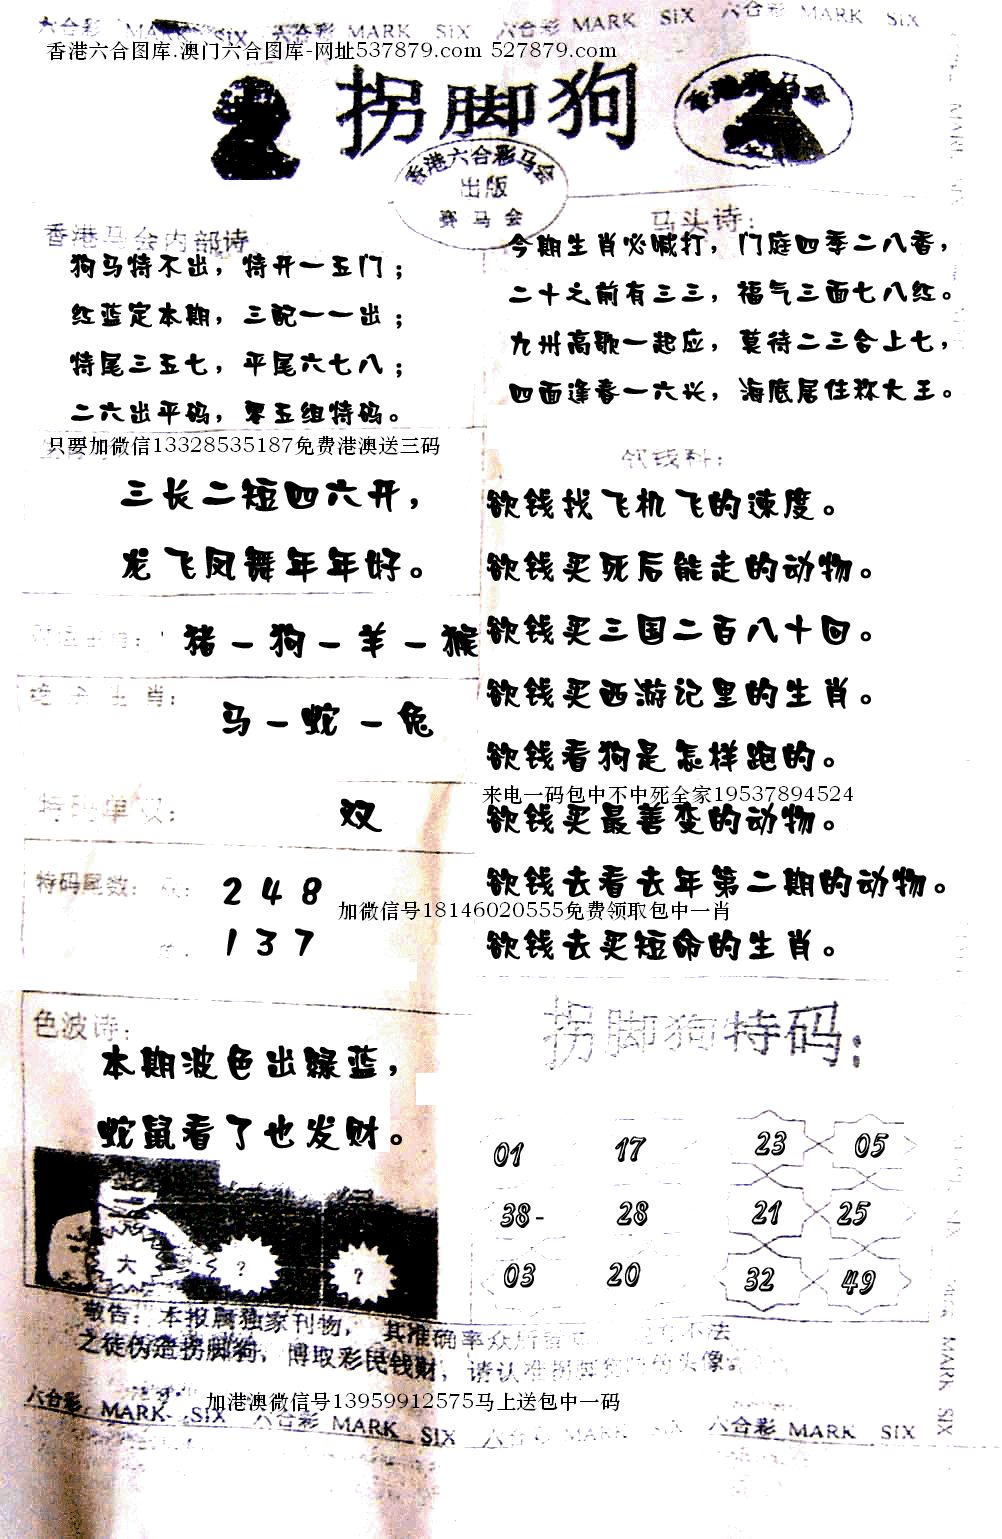 六合彩 MARK SIX 六合彩 MARK SIX 六合彩 MARK SIX 六合彩 MARK SIX
香港六合图库.澳门六合图库-网址537879.com 527879.com
拐脚狗
香港六合彩马会
出版
赛马会
香港马会内部诗
狗马特不出，特开一五门；
红蓝定本期，三配一一出；
特尾三五七，平尾六七八；
二六出平码，零五组特码。
马头诗：
今期生肖必喊打，门庭四季二八香，
二十之前有三三，福气三面七八红。
九州高歌一起应，莫待二三合上七，
四面逢春一六兴，海底居住称大王。
只要加微信13328535187免费港澳送三码
三长二短四六开，
龙飞凤舞年年好。
猪－狗－羊－猴
生肖：
马－蛇－兔
特码单双：
双
特码尾数：
2 4 8
1 3 7
欲钱料：
欲钱找飞机飞的速度。
欲钱买死后能走的动物。
欲钱买三国二百八十回。
欲钱买西游记里的生肖。
欲钱看狗是怎样跑的。
来电一码包中不中死全家19537894524
欲钱买最善变的动物。
欲钱去看去年第二期的动物。
加微信号18146020555免费领取包中一肖
欲钱去买短命的生肖。
色波诗：
本期波色出绿蓝，
蛇鼠看了也发财。
大 ? ?
拐脚狗特码：
01 17 23 05
38- 28 21 25
03 20 32 49
敬告：本报属独家刊物，其准确率众所
不法
之徒伪造拐脚狗，博取彩民钱财，请认准拐脚
头像
加港澳微信号13959912575马上送包中一码
六合彩 MARK SIX 六合彩 MARK SIX 六合彩 MARK SIX 六合彩 MARK SIX
MARK SIX